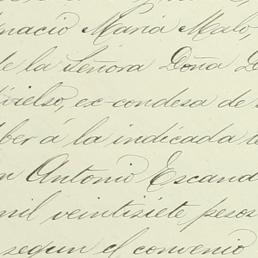 Ygnacio María Malo,
de la Señora Doña D
Vivelso, ex-condesa de
ber á la indicada te
n Antonio Escand
mil veintisiete pesos
segun el convenio